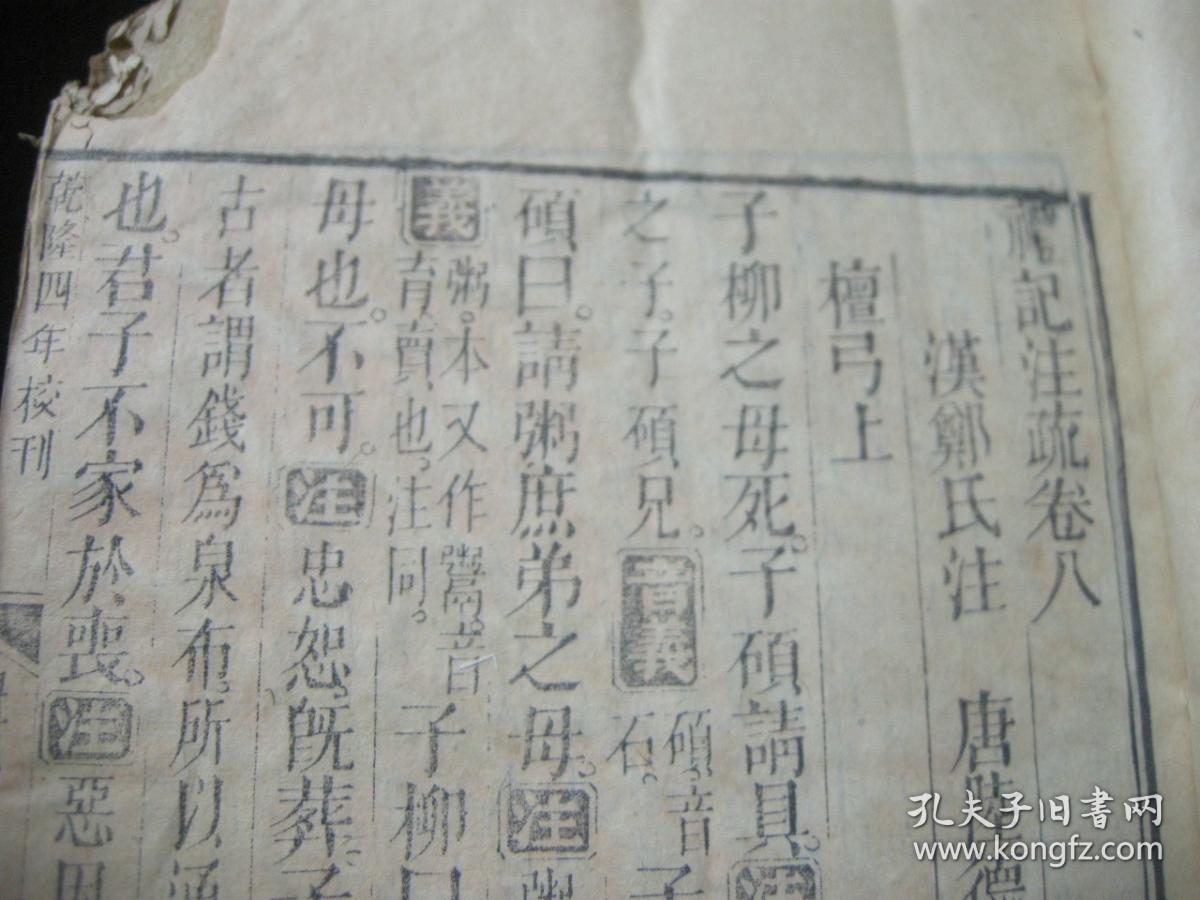 禮記注疏卷八
漢鄭氏注 唐陸德
檀弓上
子柳之母死。子碩請具。注
之子。子碩兄。音義碩。音石。子
碩曰。請粥庶弟之母。注粥
義粥。本又作鬻。音育。賣也。注同。子柳曰
母也。不可。注忠恕。既葬。子
古者謂錢為泉布。所以通
也。君子不家於喪。注惡因
乾隆四年校刊
孔夫子旧书网
www.kongfz.com